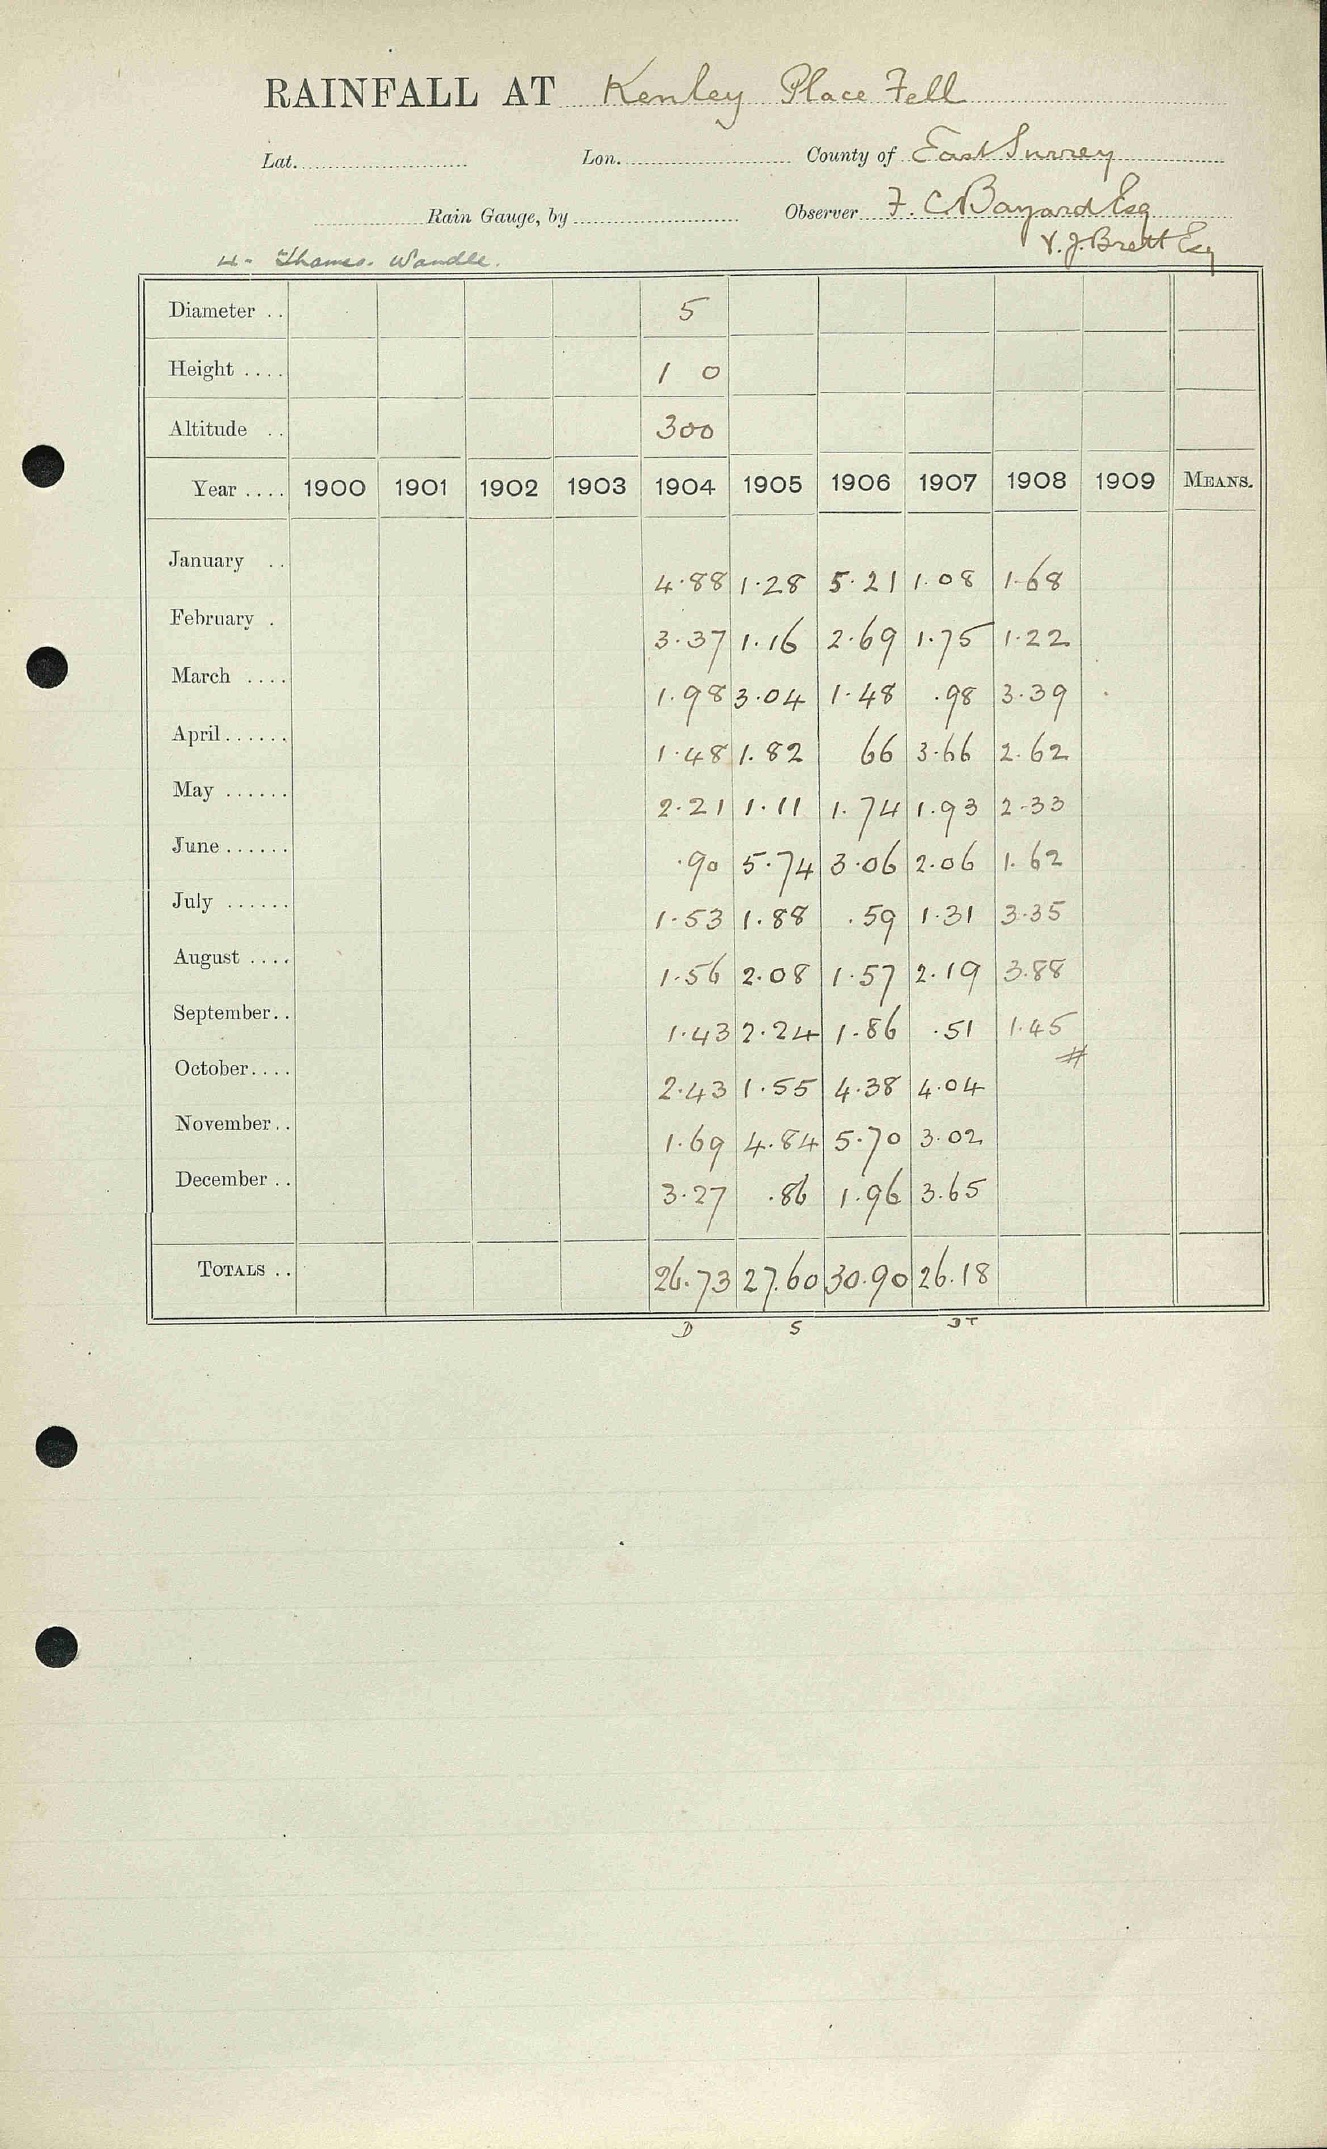 RAINFALL AT Kenley Place Fell
Lat. Lon. County of East Surrey
Rain Gauge, by Observer F. C. Bayard Esq
V. J. Brett Esq
4 - Thames. Wandle.
Diameter .. 5
Height .... 1 0
Altitude .. 300
Year .... 1900 1901 1902 1903 1904 1905 1906 1907 1908 1909 MEANS.
January .. 4.88 1.28 5.21 1.08 1.68
February . 3.37 1.16 2.69 1.75 1.22
March .... 1.98 3.04 1.48 .98 3.39
April...... 1.48 1.82 66 3.66 2.62
May ...... 2.21 1.11 1.74 1.93 2.33
June...... .90 5.74 3.06 2.06 1.62
July ...... 1.53 1.88 .59 1.31 3.35
August .... 1.56 2.08 1.57 2.19 3.88
September.. 1.43 2.24 1.86 .51 1.45
#
October.... 2.43 1.55 4.38 4.04
November.. 1.69 4.84 5.70 3.02
December .. 3.27 .86 1.96 3.65
TOTALS .. 26.73 27.60 30.90 26.18
D S